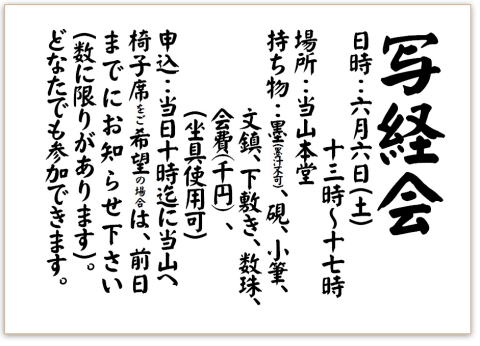 写経会
日時：六月六日(土)
十三時〜十七時
場所：当山本堂
持ち物：墨(墨汁不可)、硯、小筆、
文鎮、下敷き、数珠、
会費(千円)、
(坐具使用可)
申込：当日十時迄に当山へ
椅子席をご希望の場合は、前日
までにお知らせ下さい
(数に限りがあります)。
どなたでも参加できます。